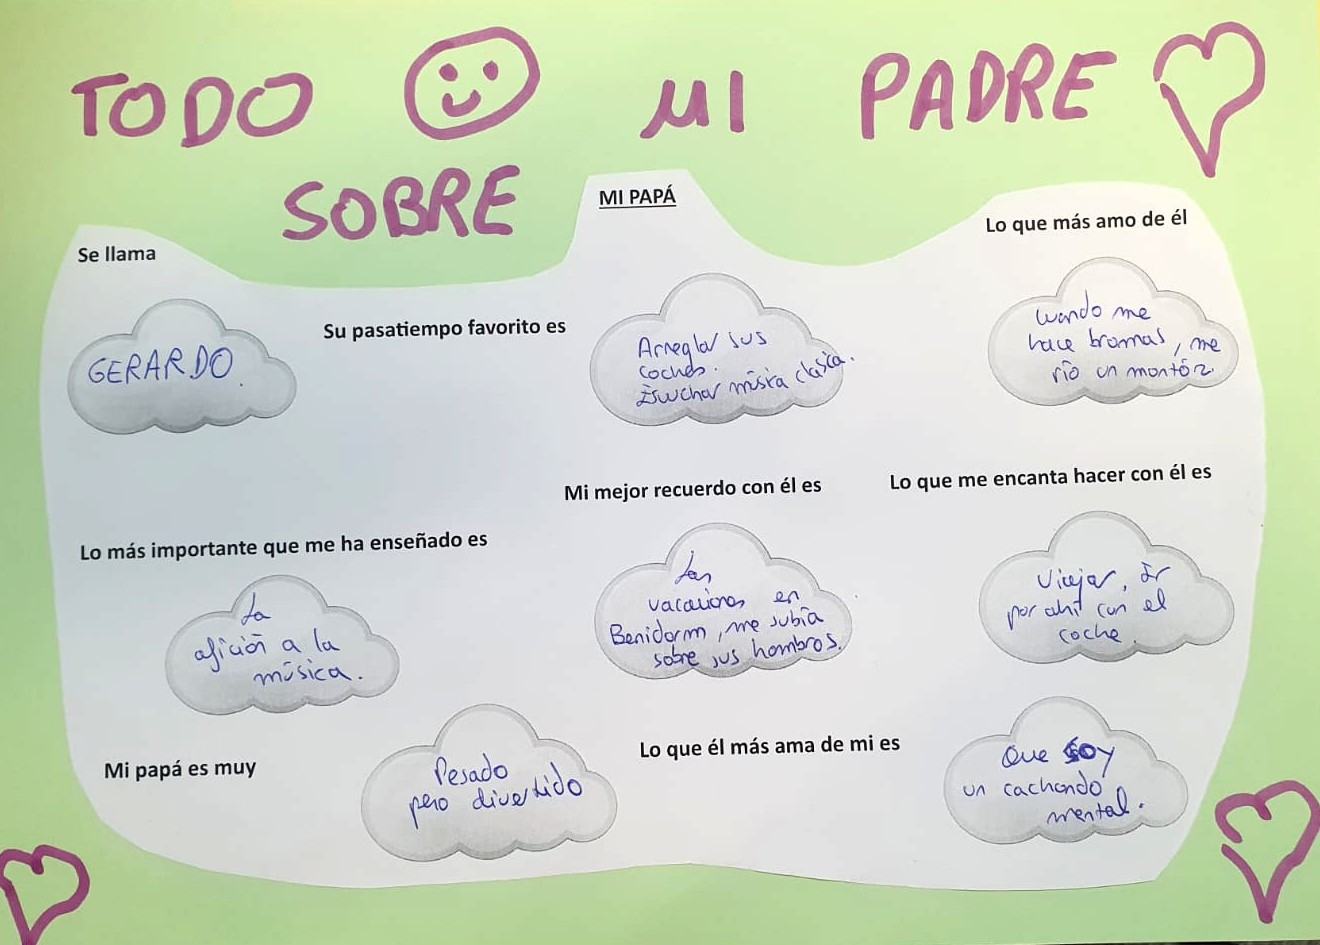 TODO MI PADRE
SOBRE
MI PAPÁ
Se llama
GERARDO.
Su pasatiempo favorito es
Arreglar sus
coches.
Escuchar música clásica.
Lo que más amo de él
Cuando me
hace bromas, me
río un montón.
Lo más importante que me ha enseñado es
La
afición a la
música.
Mi mejor recuerdo con él es
Las
vacaciones en
Benidorm, me subía
sobre sus hombros.
Lo que me encanta hacer con él es
Viajar, Ir
por ahí con el
coche.
Mi papá es muy
Pesado
pero divertido
Lo que él más ama de mi es
Que soy
un cachondo
mental.